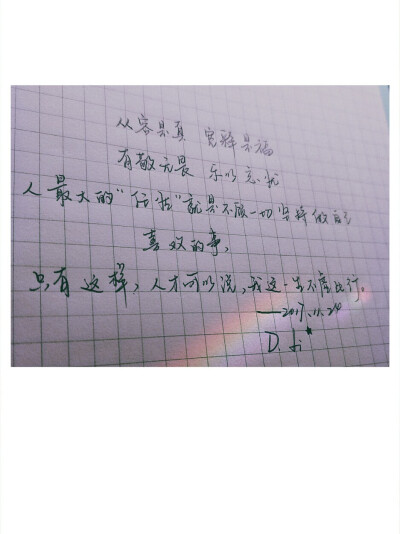 从容是真 是福
有敬无畏 乐以忘忧
人最大的“任性”就是不顾一切坚持做自己
喜欢的事,
只有这样,人才可以说,我这一生不虚此行。
——2017.11.24
D. Li